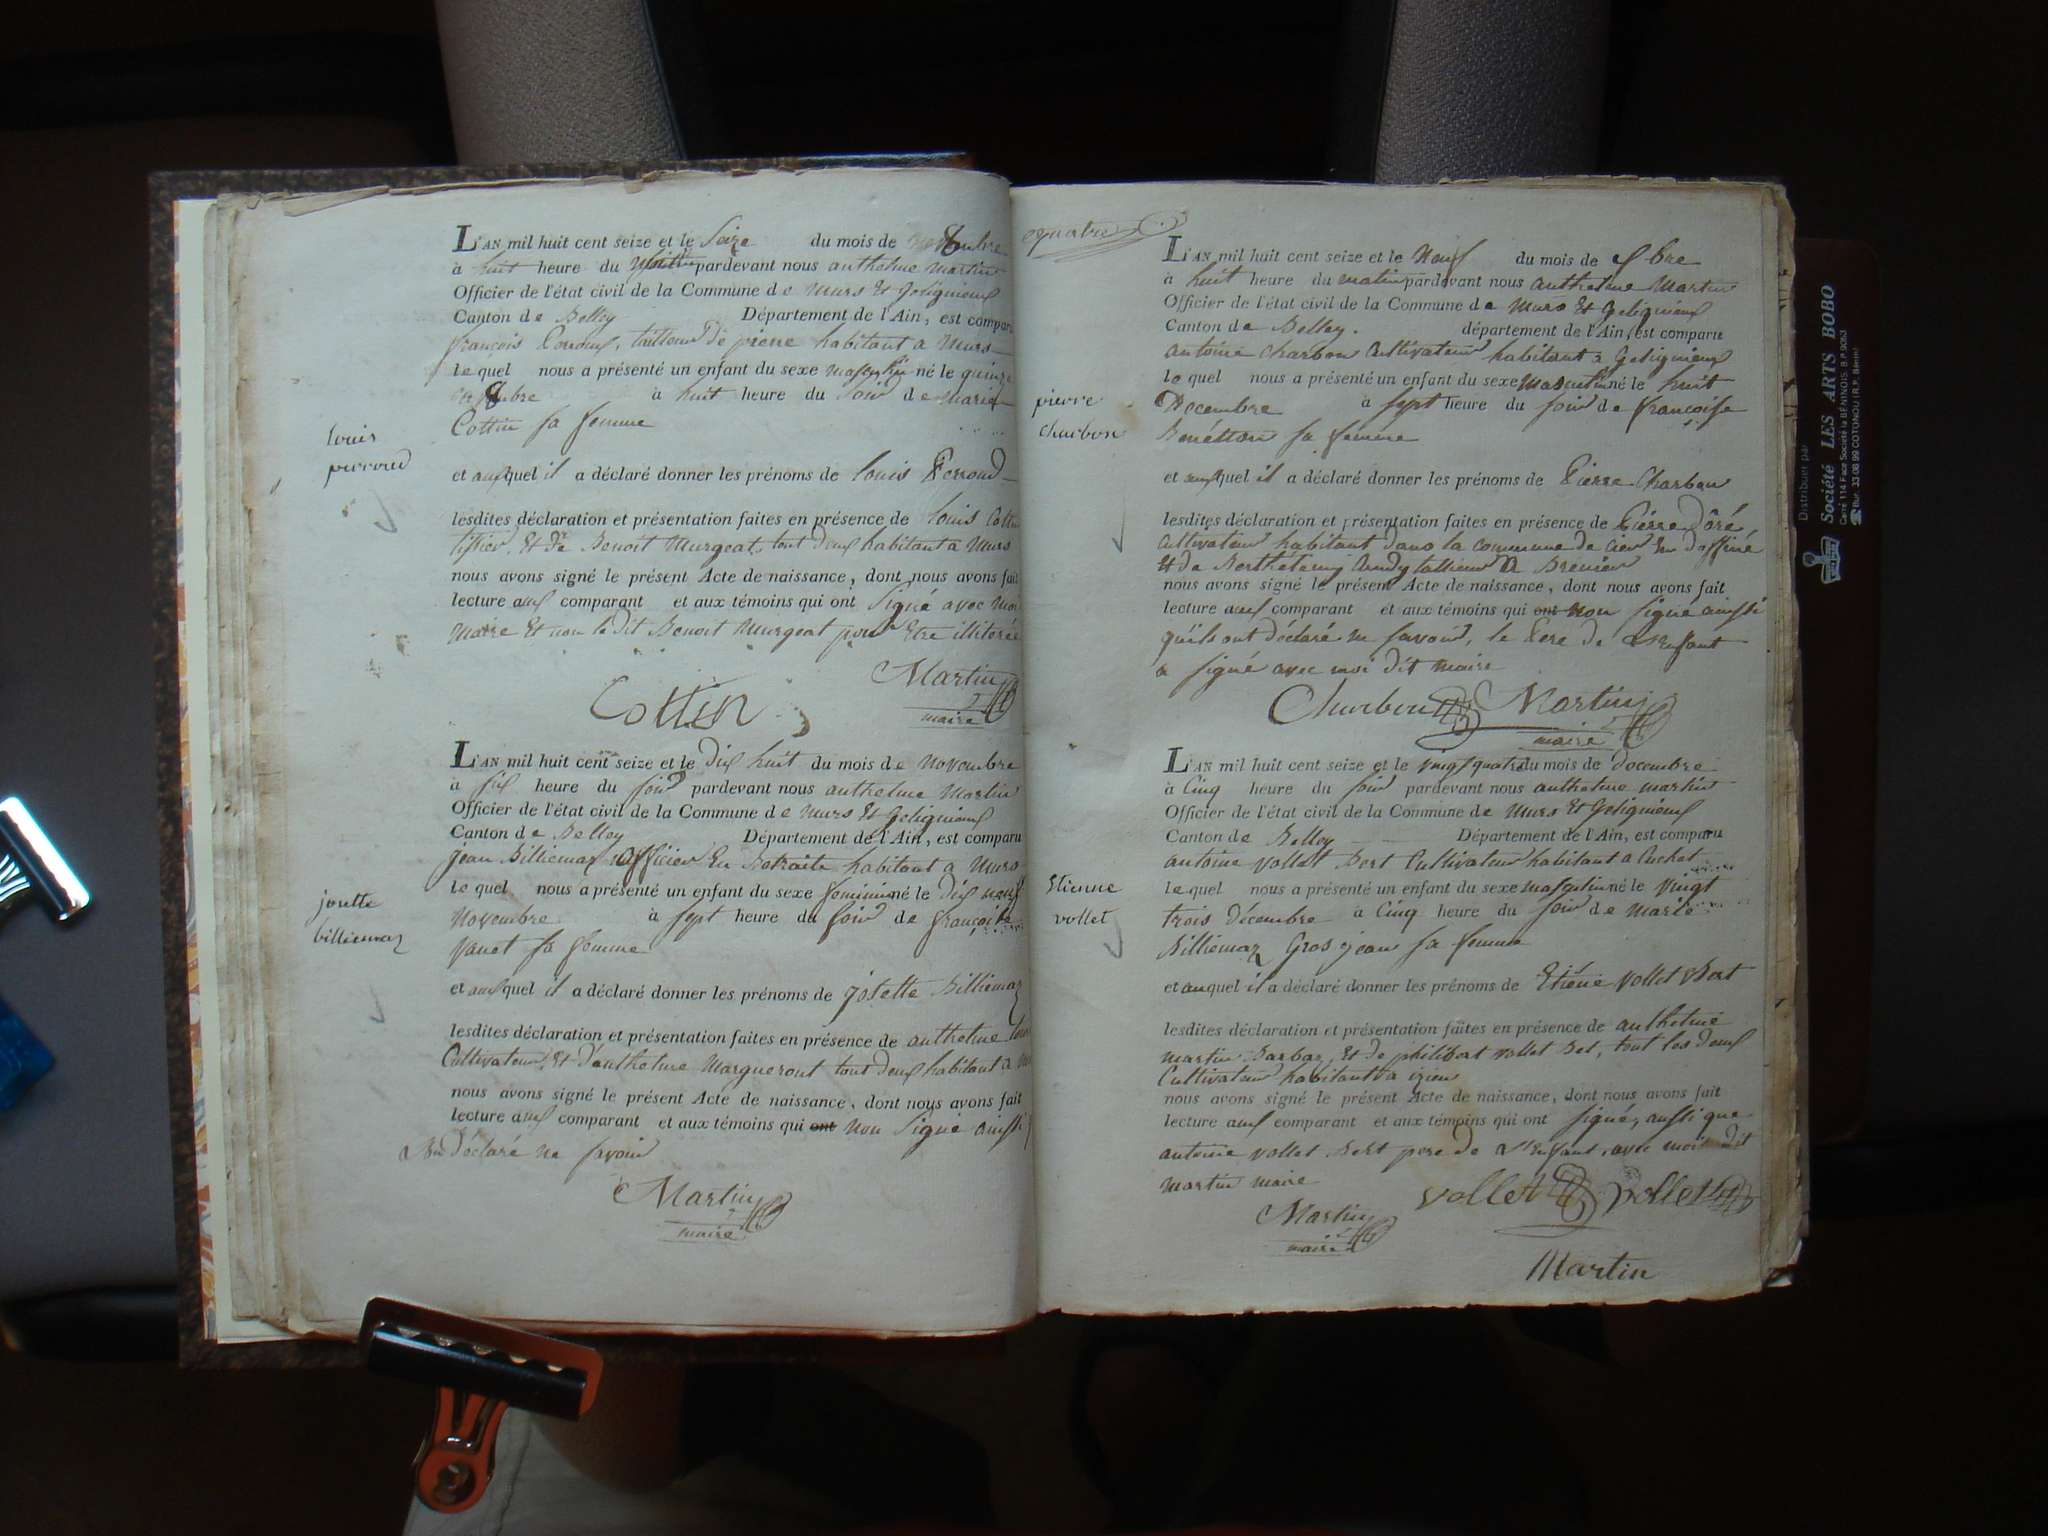 L'AN mil huit cent seize et le Seize du mois de
à huit heure du pardevant nous anthelme martin
Officier de l'état civil de la Commune de murs Et gelignieux
Canton de Belley Département de l'Ain, est comparu
françois Perroud, tailleur de pierre habitant a Murs
le quel nous a présenté un enfant du sexe masculin né le quinze
à huit heure du soir de marie
Cottin sa femme
louis
perroud
et auquel il a déclaré donner les prénoms de louis Perroud
lesdites déclaration et présentation faites en présence de louis Cottin
tissier, Et de Benoit Murgeat, tout deux habitant a Murs
nous avons signé le présent Acte de naissance, dont nous avons fait
lecture aux comparant et aux témoins qui ont signé avec moi
maire Et non le dit Benoit Murgeat pour Etre illiteré
Martin
maire
Cottin
L'AN mil huit cent seize et le dix huit du mois de novembre
à six heure du soir pardevant nous anthelme Martin
Officier de l'état civil de la Commune de murs Et gelignieux
Canton de Belley Département de l'Ain, est comparu
jean Billiemaz officier En Retraite habitant a Murs
le quel nous a présenté un enfant du sexe feminin né le dix neuf
novembre à sept heure du soir de françoise
Janet sa femme
josette
billiemaz
et auxquel il a déclaré donner les prénoms de josette Billiemaz
lesdites déclaration et présentation faites en présence de anthelme
Cultivateur, Et d'anthelme Margueront tout deux habitant a
nous avons signé le présent Acte de naissance, dont nous avons fait
lecture aux comparant et aux témoins qui ont non signé ainsi
déclaré ne savoir
Martin
maire
quatre
L'AN mil huit cent seize et le neuf du mois de Xbre
à huit heure du matin pardevant nous anthelme Martin
Officier de l'état civil de la Commune de Murs Et gelignieux
Canton de Belley. département de l'Ain, est comparu
antoine charbon Cultivateur habitant a gelignieux
le quel nous a présenté un enfant du sexe masculin né le huit
Decembre à sept heure du soir de françoise
Benétton sa femme
pierre
charbon
et auxquel il a déclaré donner les prénoms de Pierre Charbon
lesdites déclaration et présentation faites en présence de Pierre Doré
cultivateur habitant dans la commune de En doffiné
Et de tallieur a Brenier
nous avons signé le présent Acte de naissance, dont nous avons fait
lecture aux comparant et aux témoins qui ont non signé ainssi
qu'ils ont déclaré ne savoir, le Pere de L'Enfant
a signé avec moi dit maire
Charbon Martin
maire
L'AN mil huit cent seize et le vingt quatre du mois de decembre
à Cinq heure du soir pardevant nous anthelme martin
Officier de l'état civil de la Commune de Murs Et gelignieux
Canton de Belley Département de l'Ain, est comparu
antoine vollet Bert Cultivateur habitant a Cuchet
le quel nous a présenté un enfant du sexe masculin né le vingt
trois décembre à Cinq heure du soir de marie
Billiemaz Gros jean sa femme
Etienne
vollet
et auquel il a déclaré donner les prénoms de Etiéne vollet Bert
lesdites déclaration et présentation faites en présence de anthelme
martin Barbaz, Et de philibert vollet Bet, tout les deux
Cultivateur habitant a izieu
nous avons signé le présent Acte de naissance, dont nous avons fait
lecture aux comparant et aux témoins qui ont signé, aussi que
antoine vollet Bert pere de L'Enfant, avec moi dit
martin maire
vollet vollet
Martin
maire
Martin
Distribuer par
Société LES ARTS BOBO
Carré 114 Face Société la BÉNINOIS. B.P. 9053
Bur. 33-08 99 COTONOU (R.P. Bénin)